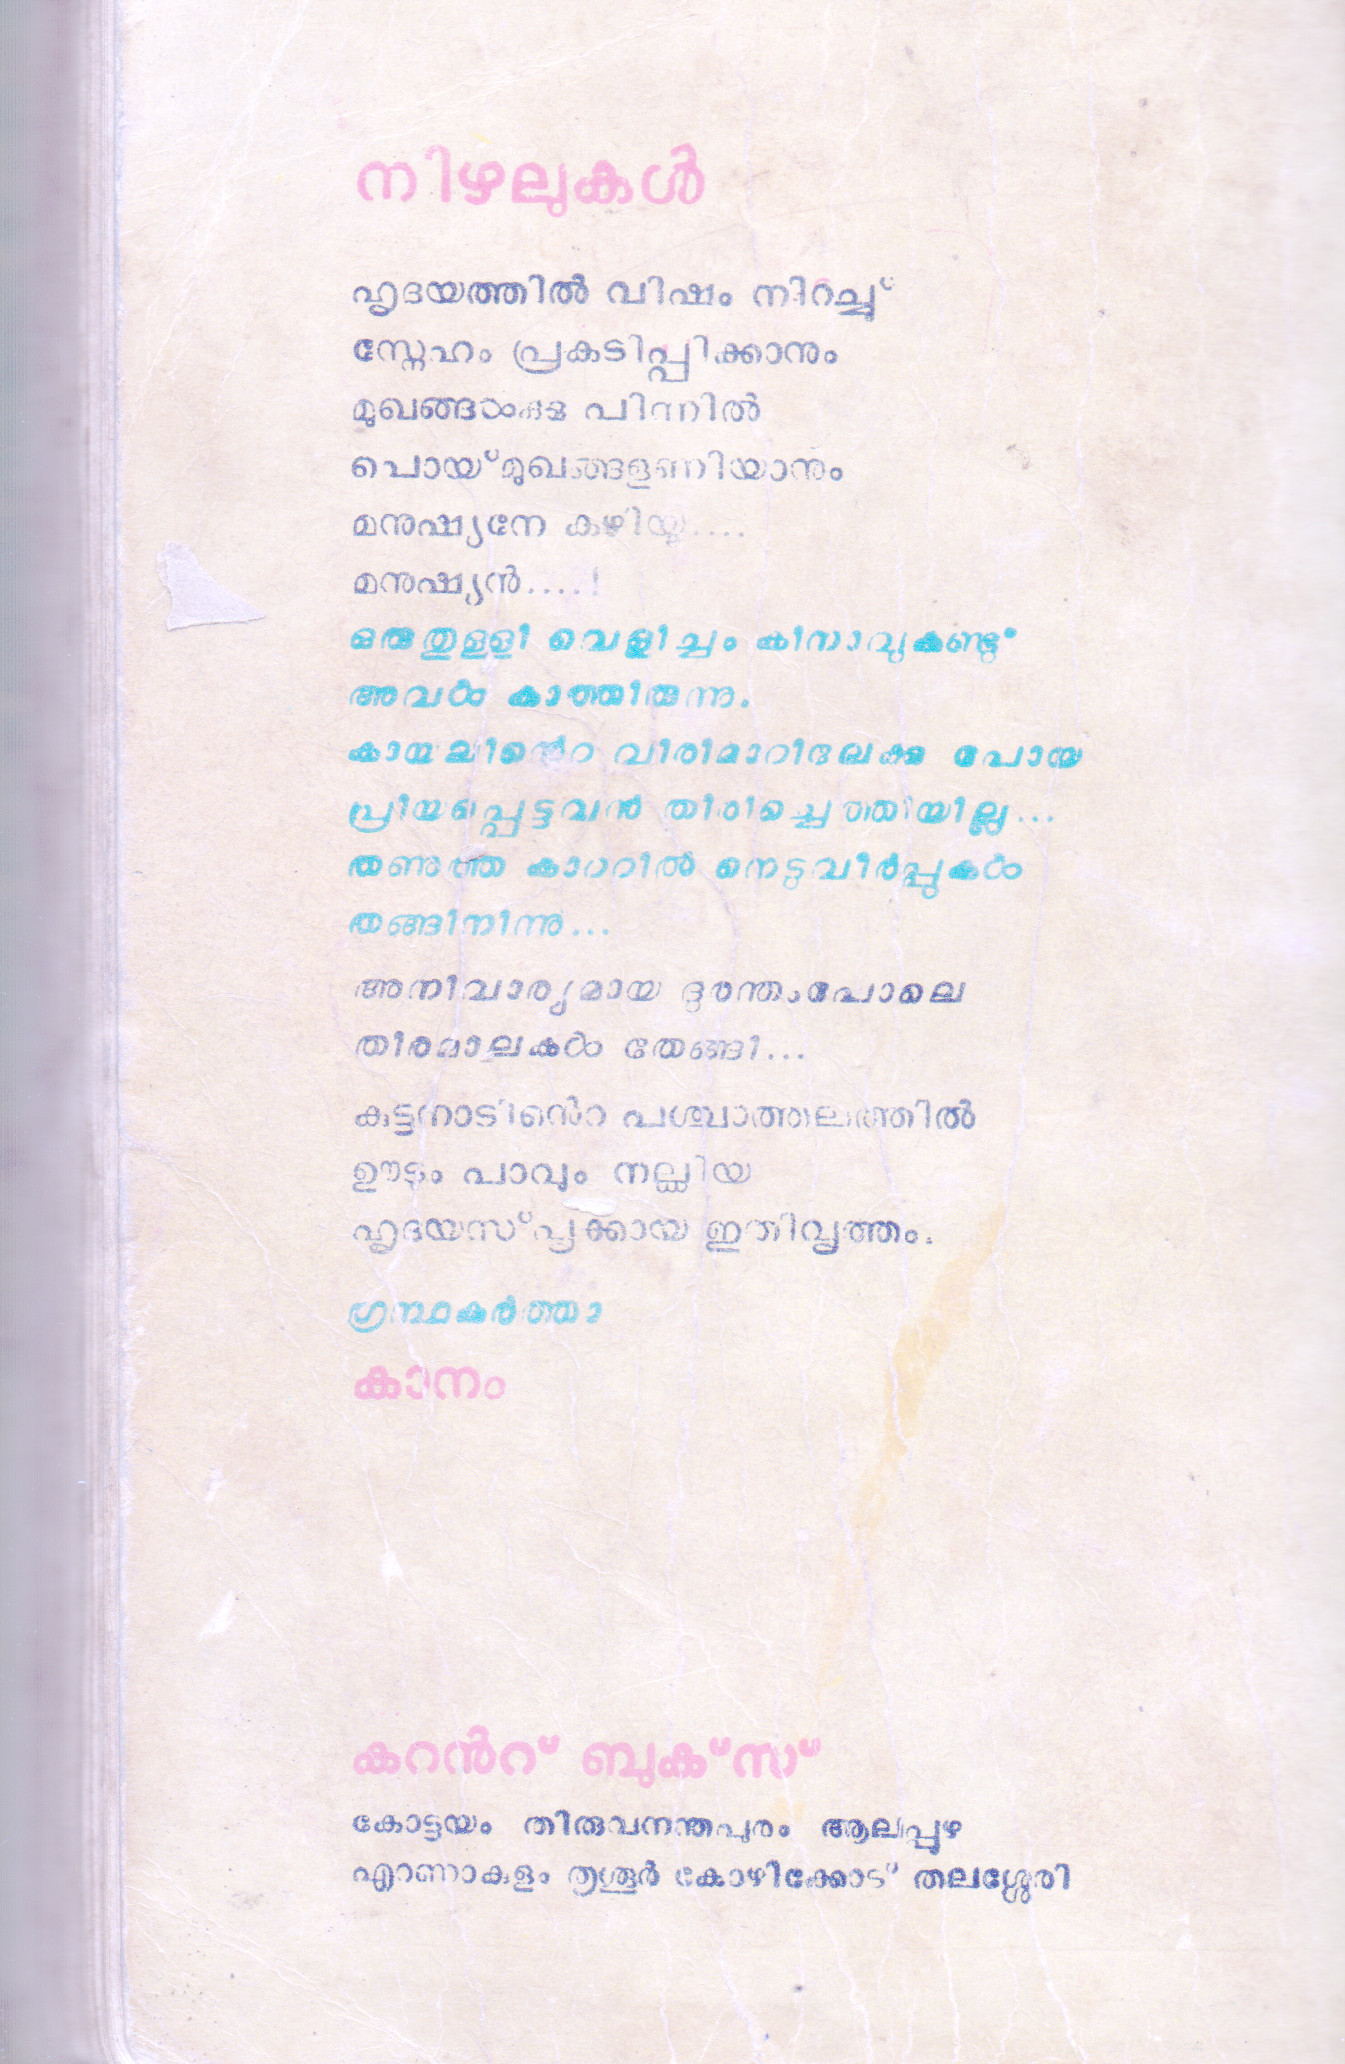 നിഴലുകൾ
ഹൃദയത്തിൽ വിഷം നിറച്ചു്
സ്നേഹം പ്രകടിപ്പിക്കാനും
മുഖങ്ങൾക്കു പിന്നിൽ
പൊയ്മുഖങ്ങളണിയാനും
മനുഷ്യനേ കഴിയൂ....
മനുഷ്യൻ....!
ഒരുതുള്ളി വെളിച്ചം കിനാവുകണ്ടു്
അവൾ കാത്തിരുന്നു.
കായലിൻെറ വിരിമാറിലേക്കു പോയ
പ്രിയപ്പെട്ടവൻ തിരിച്ചെത്തിയില്ല...
തണുത്ത കാററിൽ നെടുവീർപ്പുകൾ
തങ്ങിനിന്നു...
അനിവാര്യമായ ദുരന്തംപോലെ
തിരമാലകൾ തേങ്ങി...
കുട്ടനാടിൻെറ പശ്ചാത്തലത്തിൽ
ഊടും പാവും നല്കിയ
ഹൃദയസ്പൃക്കായ ഇതിവൃത്തം.
ഗ്രന്ഥകർത്താ
കാനം
കറൻറ് ബുക്സ്
കോട്ടയം തിരുവനന്തപുരം ആലപ്പുഴ
എറണാകുളം തൃശൂർ കോഴിക്കോട് തലശ്ശേരി